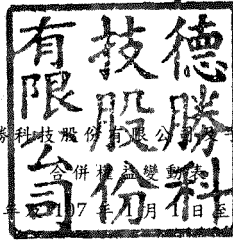 德勝科
技股份
有限公司
勝科技股份有限公司及子
合併權益變動表
年及107年1月1日至